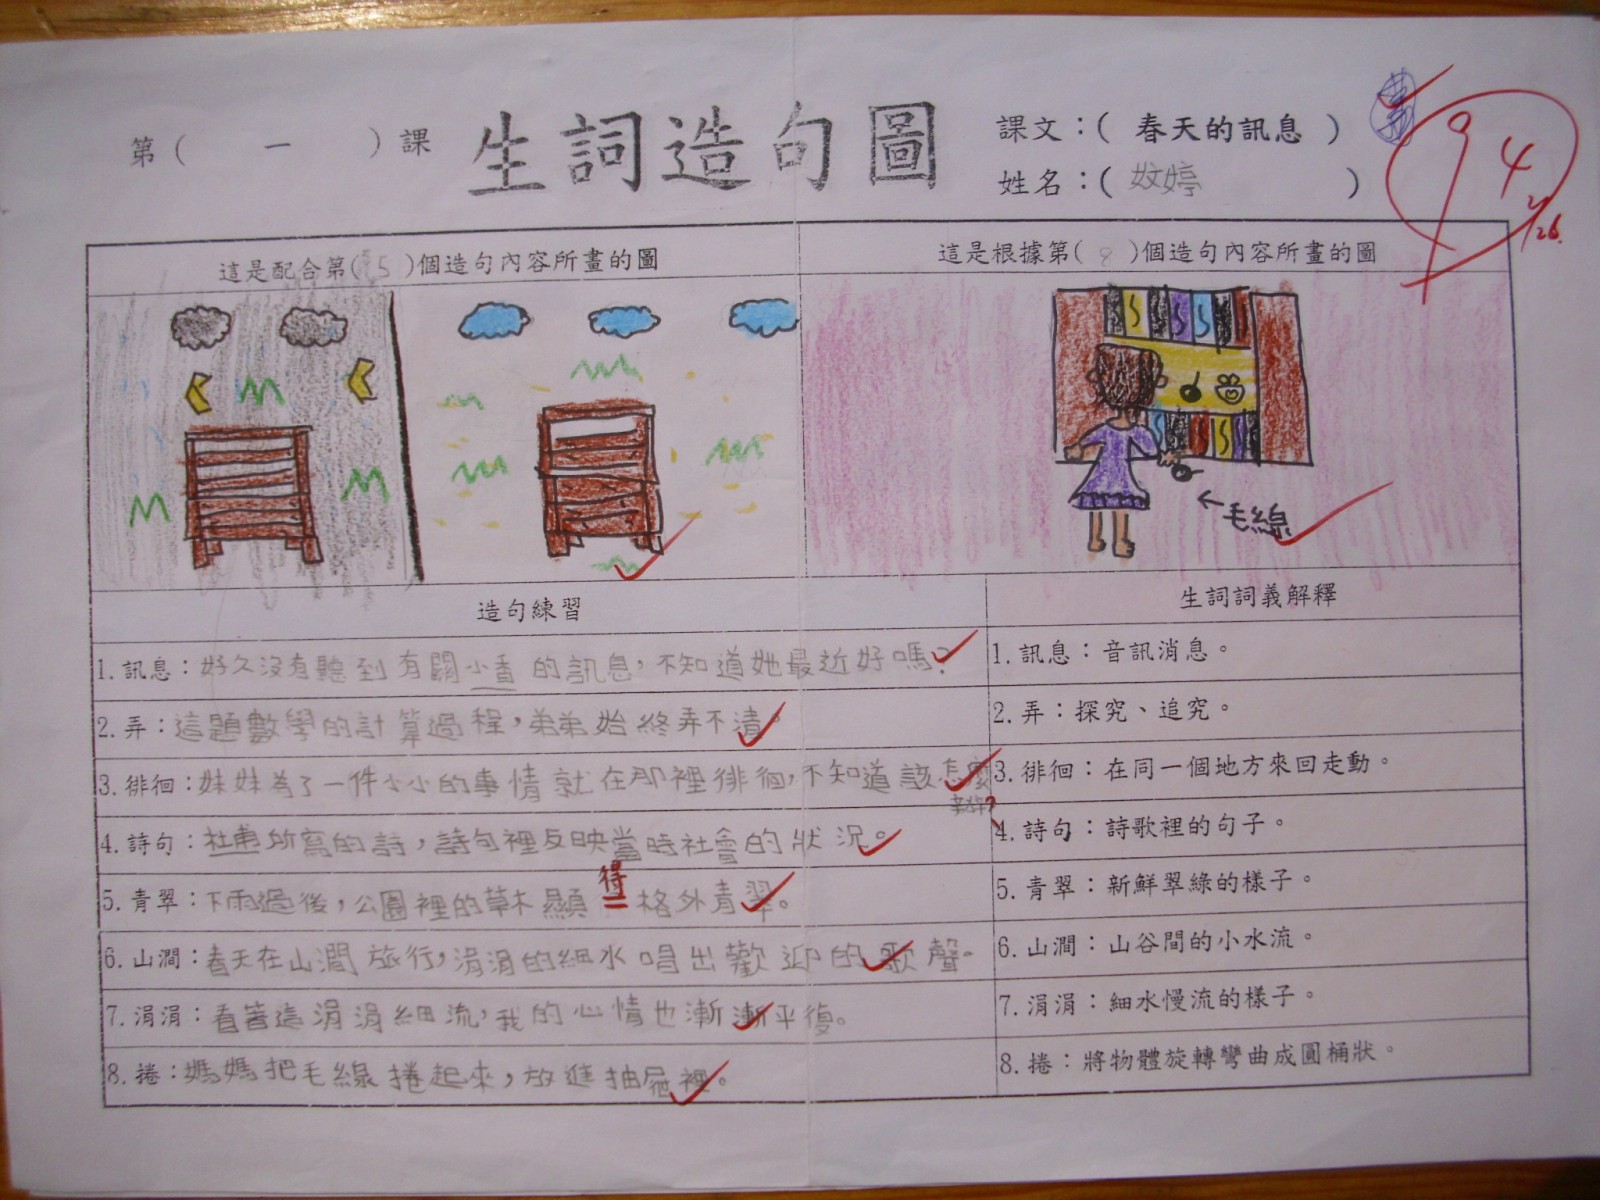 第( 一 )課 生詞造句圖 課文：( 春天的訊息 )
姓名：( 妏婷 )
94
2/26
這是配合第( 5 )個造句內容所畫的圖
這是根據第( 8 )個造句內容所畫的圖
←毛線
造句練習
生詞詞義解釋
1.訊息：好久沒有聽到有關小香的訊息，不知道她最近好嗎？
1.訊息：音訊消息。
2.弄：這題數學的計算過程，弟弟始終弄不清。
2.弄：探究、追究。
3.徘徊：妹妹為了一件小小的事情就在那裡徘徊，不知道該怎麼辦？
3.徘徊：在同一個地方來回走動。
4.詩句：杜甫所寫的詩，詩句裡反映當時社會的狀況。
4.詩句：詩歌裡的句子。
5.青翠：下雨過後，公園裡的草木顯得格外青翠。
5.青翠：新鮮翠綠的樣子。
6.山澗：春天在山澗旅行，涓涓的細水唱出歡迎的歌聲。
6.山澗：山谷間的小水流。
7.涓涓：看著這涓涓細流，我的心情也漸漸平復。
7.涓涓：細水慢流的樣子。
8.捲：媽媽把毛線捲起來，放進抽屜裡。
8.捲：將物體旋轉彎曲成圓桶狀。